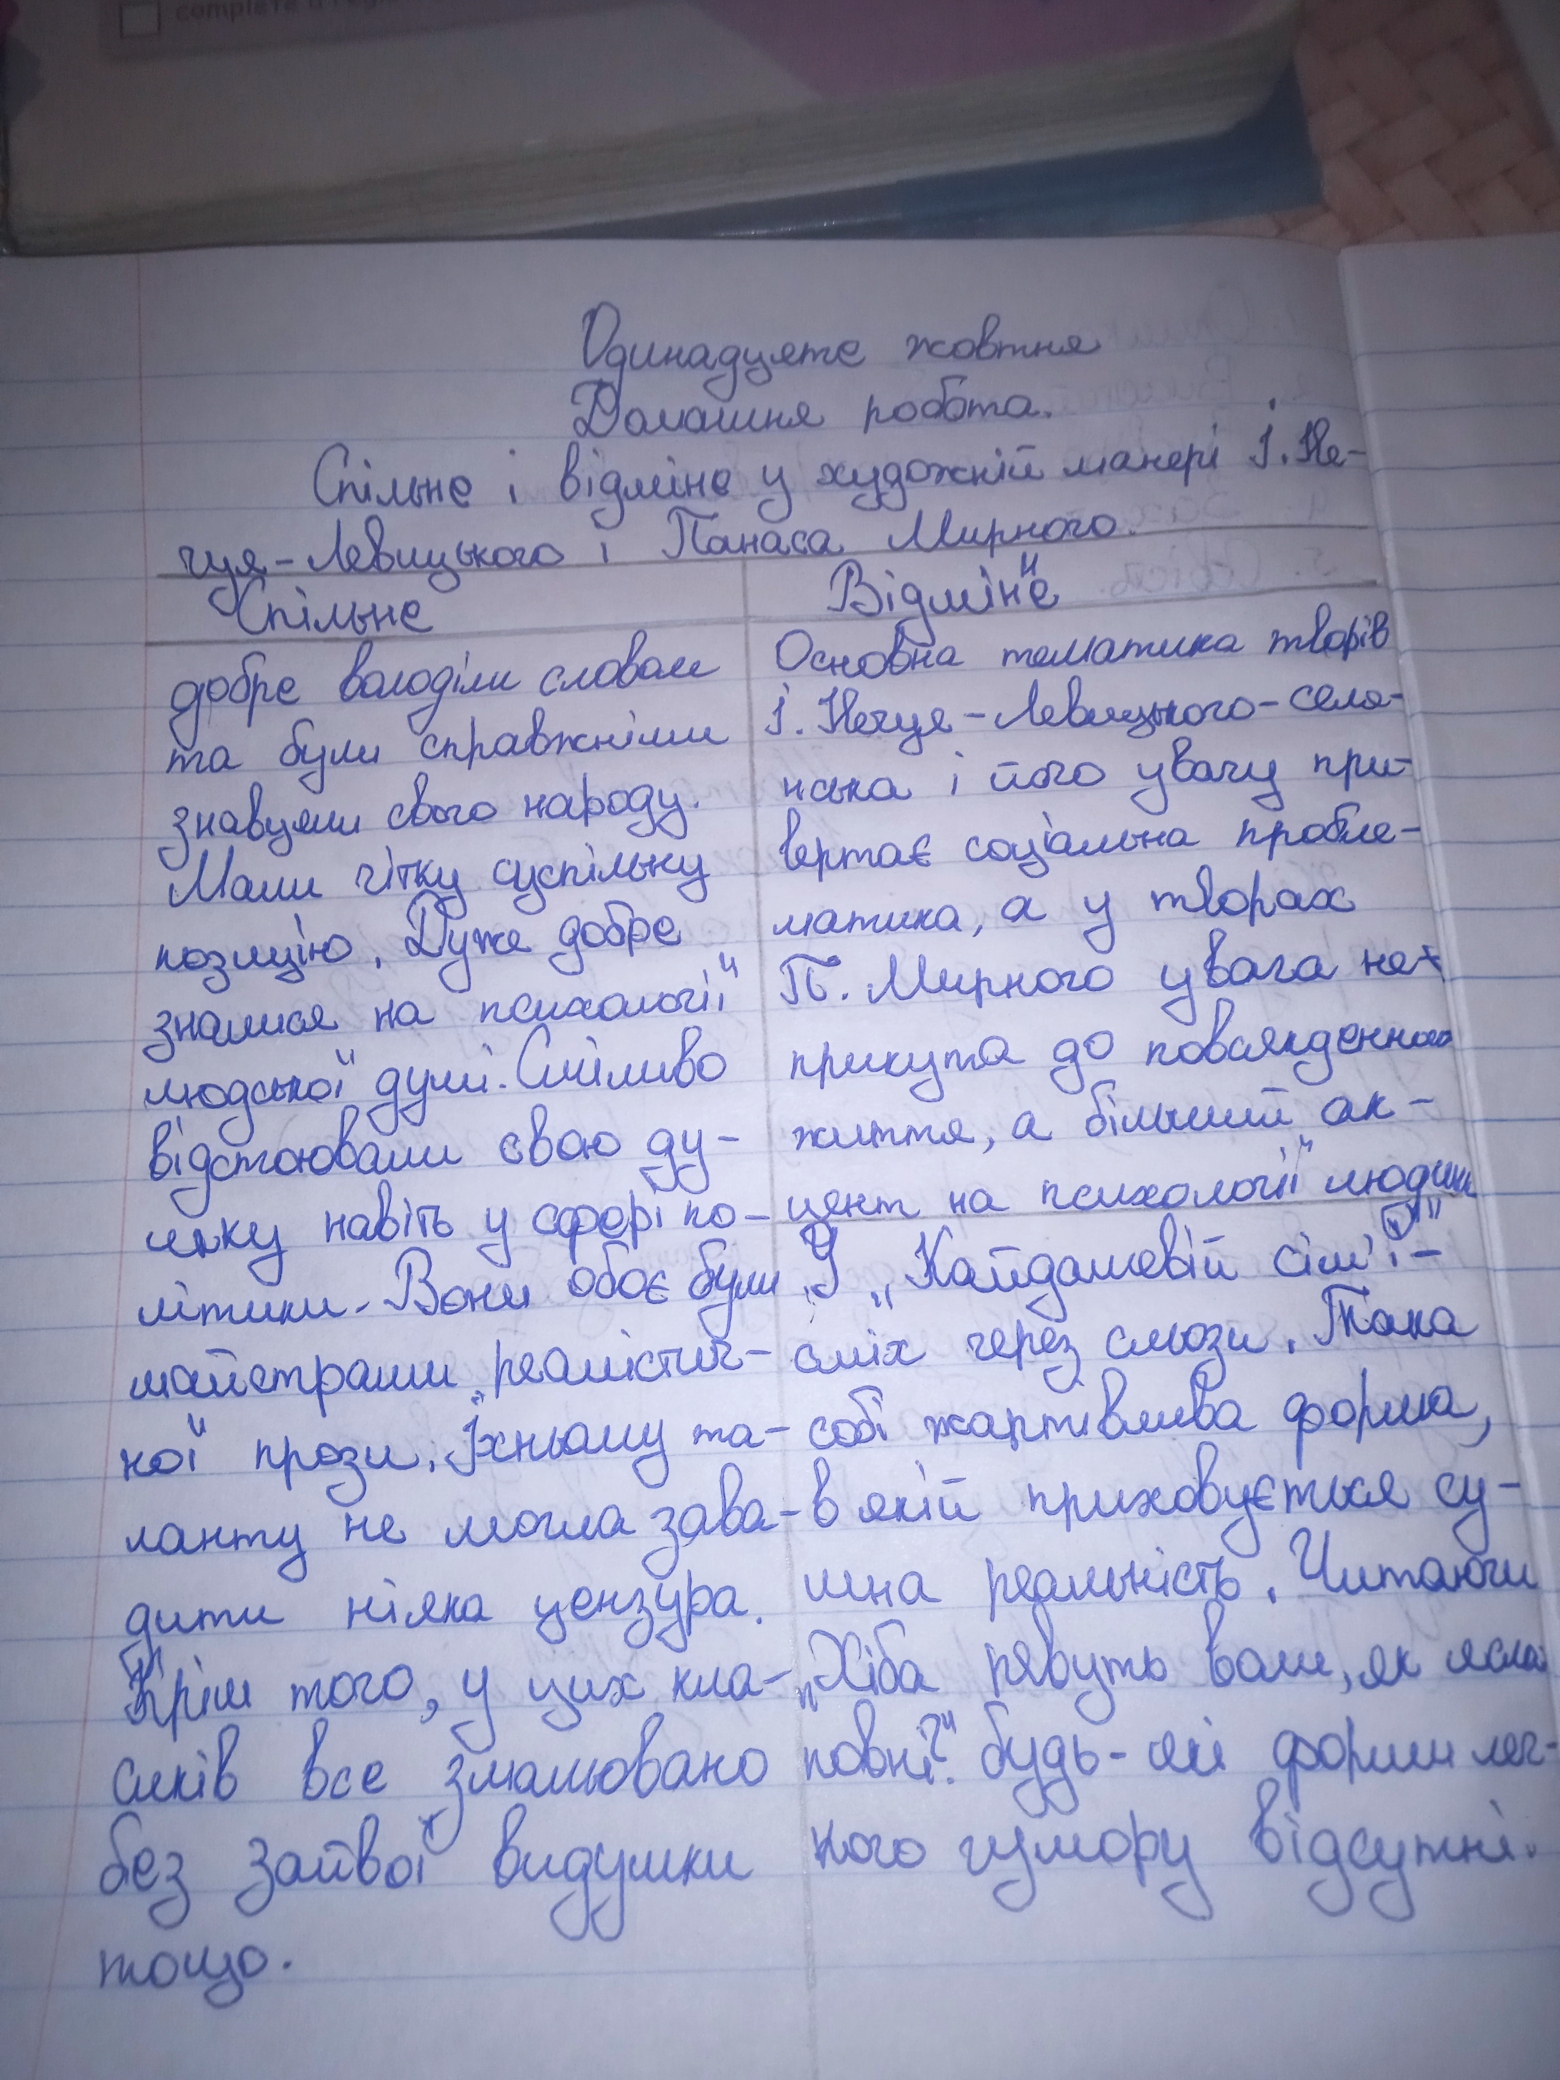 complete a
Одинадцяте жовтня
Домашня робота.
Спільне і відмінне у художній манері І. Не-
чуя-Левицького і Панаса Мирного.
Спільне
добре володіли словом
та були справжніми
знавцями свого народу.
Мали чітку суспільну
позицію. Дуже добре
знались на психології
людської душі. Сміливо
відстоювали свою ду-
мку навіть у сфері по-
літики. Вони обоє були
майстрами реалістич-
ної прози. Їхньому та-
ланту не могла зава-
дити ніяка цензура.
Крім того, у цих кла-
сиків все змальовано
без зайвої видушки
тощо.
Відмінне
Основна тематика творів
І. Нечуя-Левицького-селя-
нська і його увагу при-
вертає соціальна пробле-
матика, а у творах
П. Мирного увага не
прикута до повсякденного
життя, а більший ак-
цент на психології людини
У „Кайдашевій сім'ї"-
сміх через сльози. Така
собі жартівлива форма,
в якій приховується су-
мна реальність. Читаючи
„Хіба ревуть воли, як ясла
повні?" будь-які форми лег-
кого гумору відсутні.